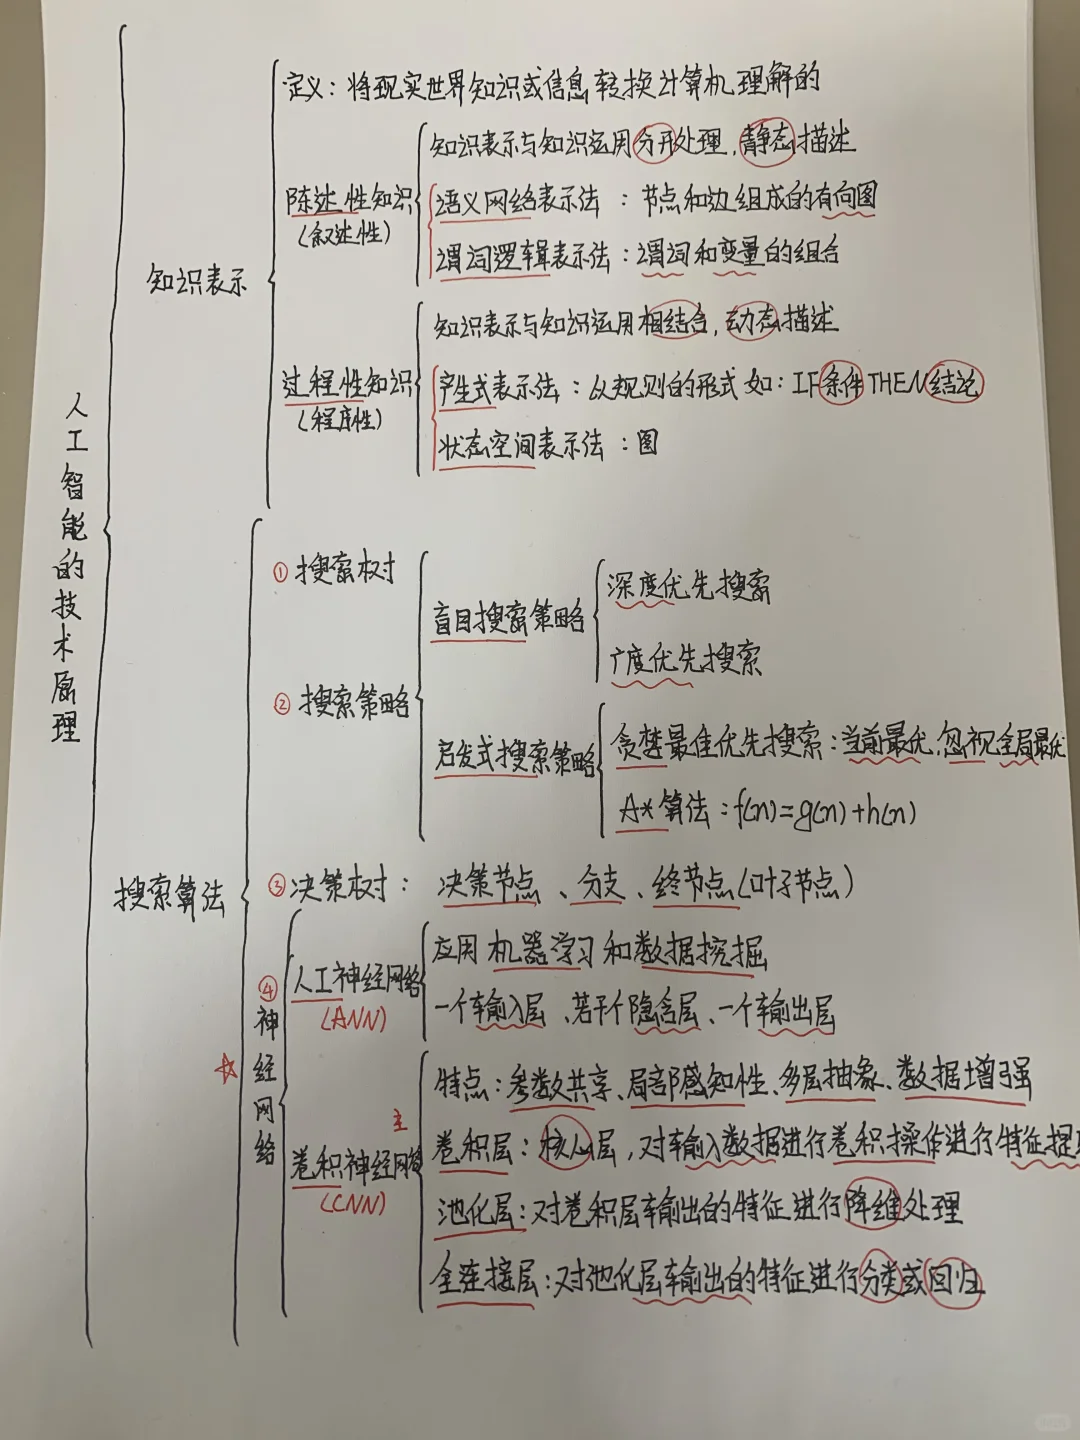 人工智能的技术原理
知识表示
定义：将现实世界知识或信息转换计算机理解的
陈述性知识
（叙述性）
知识表示与知识运用分开处理，静态描述
语义网络表示法：节点和边组成的有向图
谓词逻辑表示法：谓词和变量的组合
过程性知识
（程序性）
知识表示与知识运用相结合，动态描述
产生式表示法：以规则的形式 如：IF条件THEN结论
状态空间表示法：图
搜索算法
①搜索树
②搜索策略
盲目搜索策略
深度优先搜索
广度优先搜索
启发式搜索策略
贪婪最佳优先搜索：当前最优，忽视全局最优
A*算法：f(n)=g(n)+h(n)
③决策树：决策节点、分支、终节点（叶子节点）
☆
④神经网络
人工神经网络
（ANN）
应用 机器学习和数据挖掘
一个输入层、若干个隐含层、一个输出层
主
卷积神经网络
（CNN）
特点：参数共享、局部感知性、多层抽象、数据增强
卷积层：核心层，对输入数据进行卷积操作进行特征提
池化层：对卷积层输出的特征进行降维处理
全连接层：对池化层输出的特征进行分类或回归